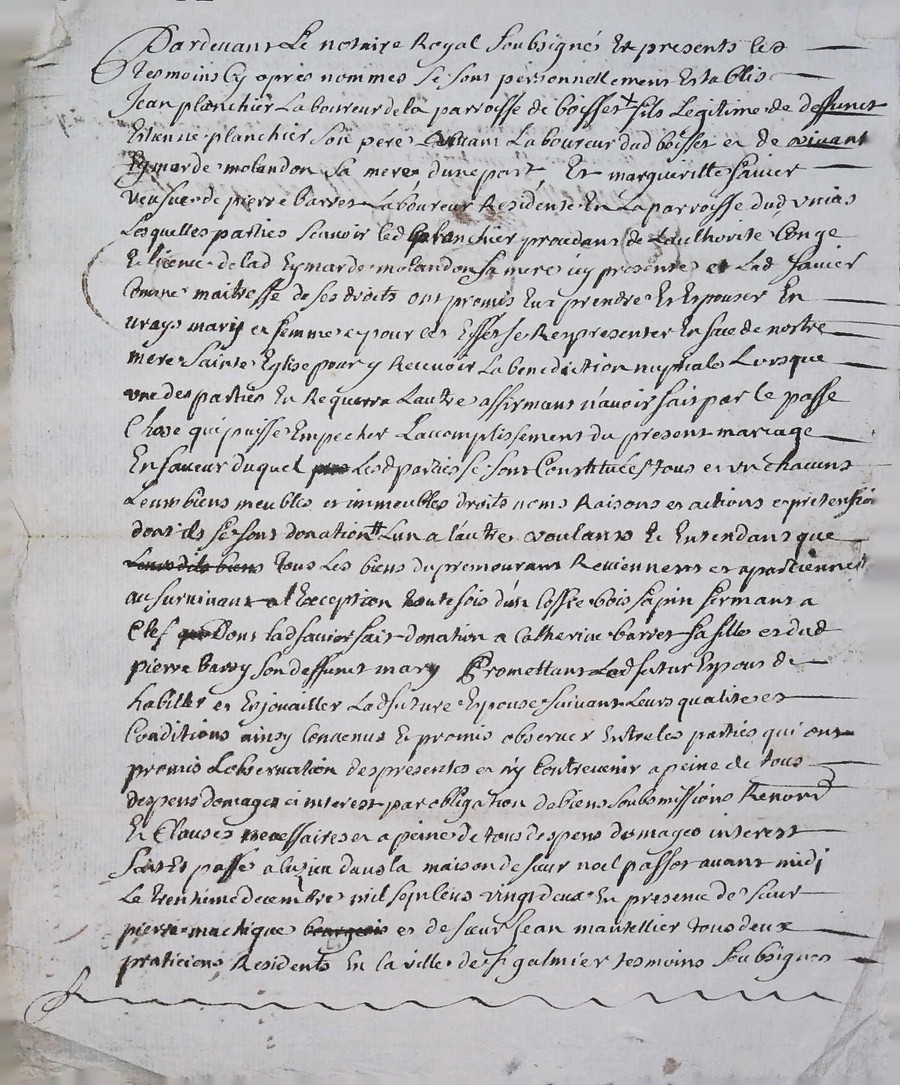 Pardevant Le notaire Royal Soubsigné Et presents les
Tesmoins Cy apres nommes se sont personnellement Establis
Jean planchier Laboureur de la parroisse de boisset fils Legitime de deffunct
Estienne planchier Son pere vivant Laboureur dud boisset et de vivant
Eymarde molandon Sa mere dune part Et margueritte favier
veufve de pierre barret Laboureur Residente En La parroisse dud
Lesquelles parties Scavoir led planchier procedant de Lauthorité Conge
Et licence de lad Eymarde molandon Sa mere icy presente et Lad favier
Comme maitresse de ses droits ont promis En prendre Et Espouser En
vrays mary et femme et pour cet Effet se Representer En face de nostre
mere Sainte Eglise pour y Recevoir La benediction nuptiale Lorsque
une des parties En Requerra Lautre affirmant n'avoir fait par le passe
Chose qui puisse Empecher Lacomplissement du present mariage
En faveur duquel Lesd parties se sont Constituées tous et un chacuns
Leurs biens meubles et immeubles droits noms Raisons et actions et pretensions
dont ils se font donation Lun a l'autre voulants Et Entendant que
Lesdits biens tous Les biens du premourant Reviennent et apartiennent
au survivant a l'Exception toutefois d'un Coffre bois sapin fermant a
Clef Dont lad favier fait donation a Catherine barret sa fille et dud
pierre barry Son deffunct mary Promettant Led futur Espous de
habiller et Enjouailler Lad future Espouse suivant Leurs qualites et
Conditions ainsy Convenus Et promis observer Entre les parties qui ont
promis Lobservation des presentes et n'y Contrevenir a peine de tous
despens domages et interest par obligation de biens Soubsmissions Renond
Et Clauses necessaires et a peine de tous despens domages interest
fait Et passé dans la maison de sieur noel passot avant midi
Le trentieme decembre mil sept cens vingt deux En presence de sieur
pierre machique bourgeois et de sieur Jean mantellier tous deux
praticiens Residents En la ville de St galmier tesmoins Soubsignes